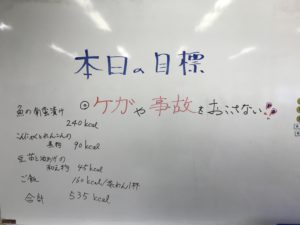 本日の目標
⊕ケガや事故をおこさない!!
魚の南蛮漬け
240kcal
こんにゃくとれんこんの
煮物 90kcal
豆苗と油あげの
和え物 45kcal
ご飯 160kcal/茶わん1杯
合計 535kcal